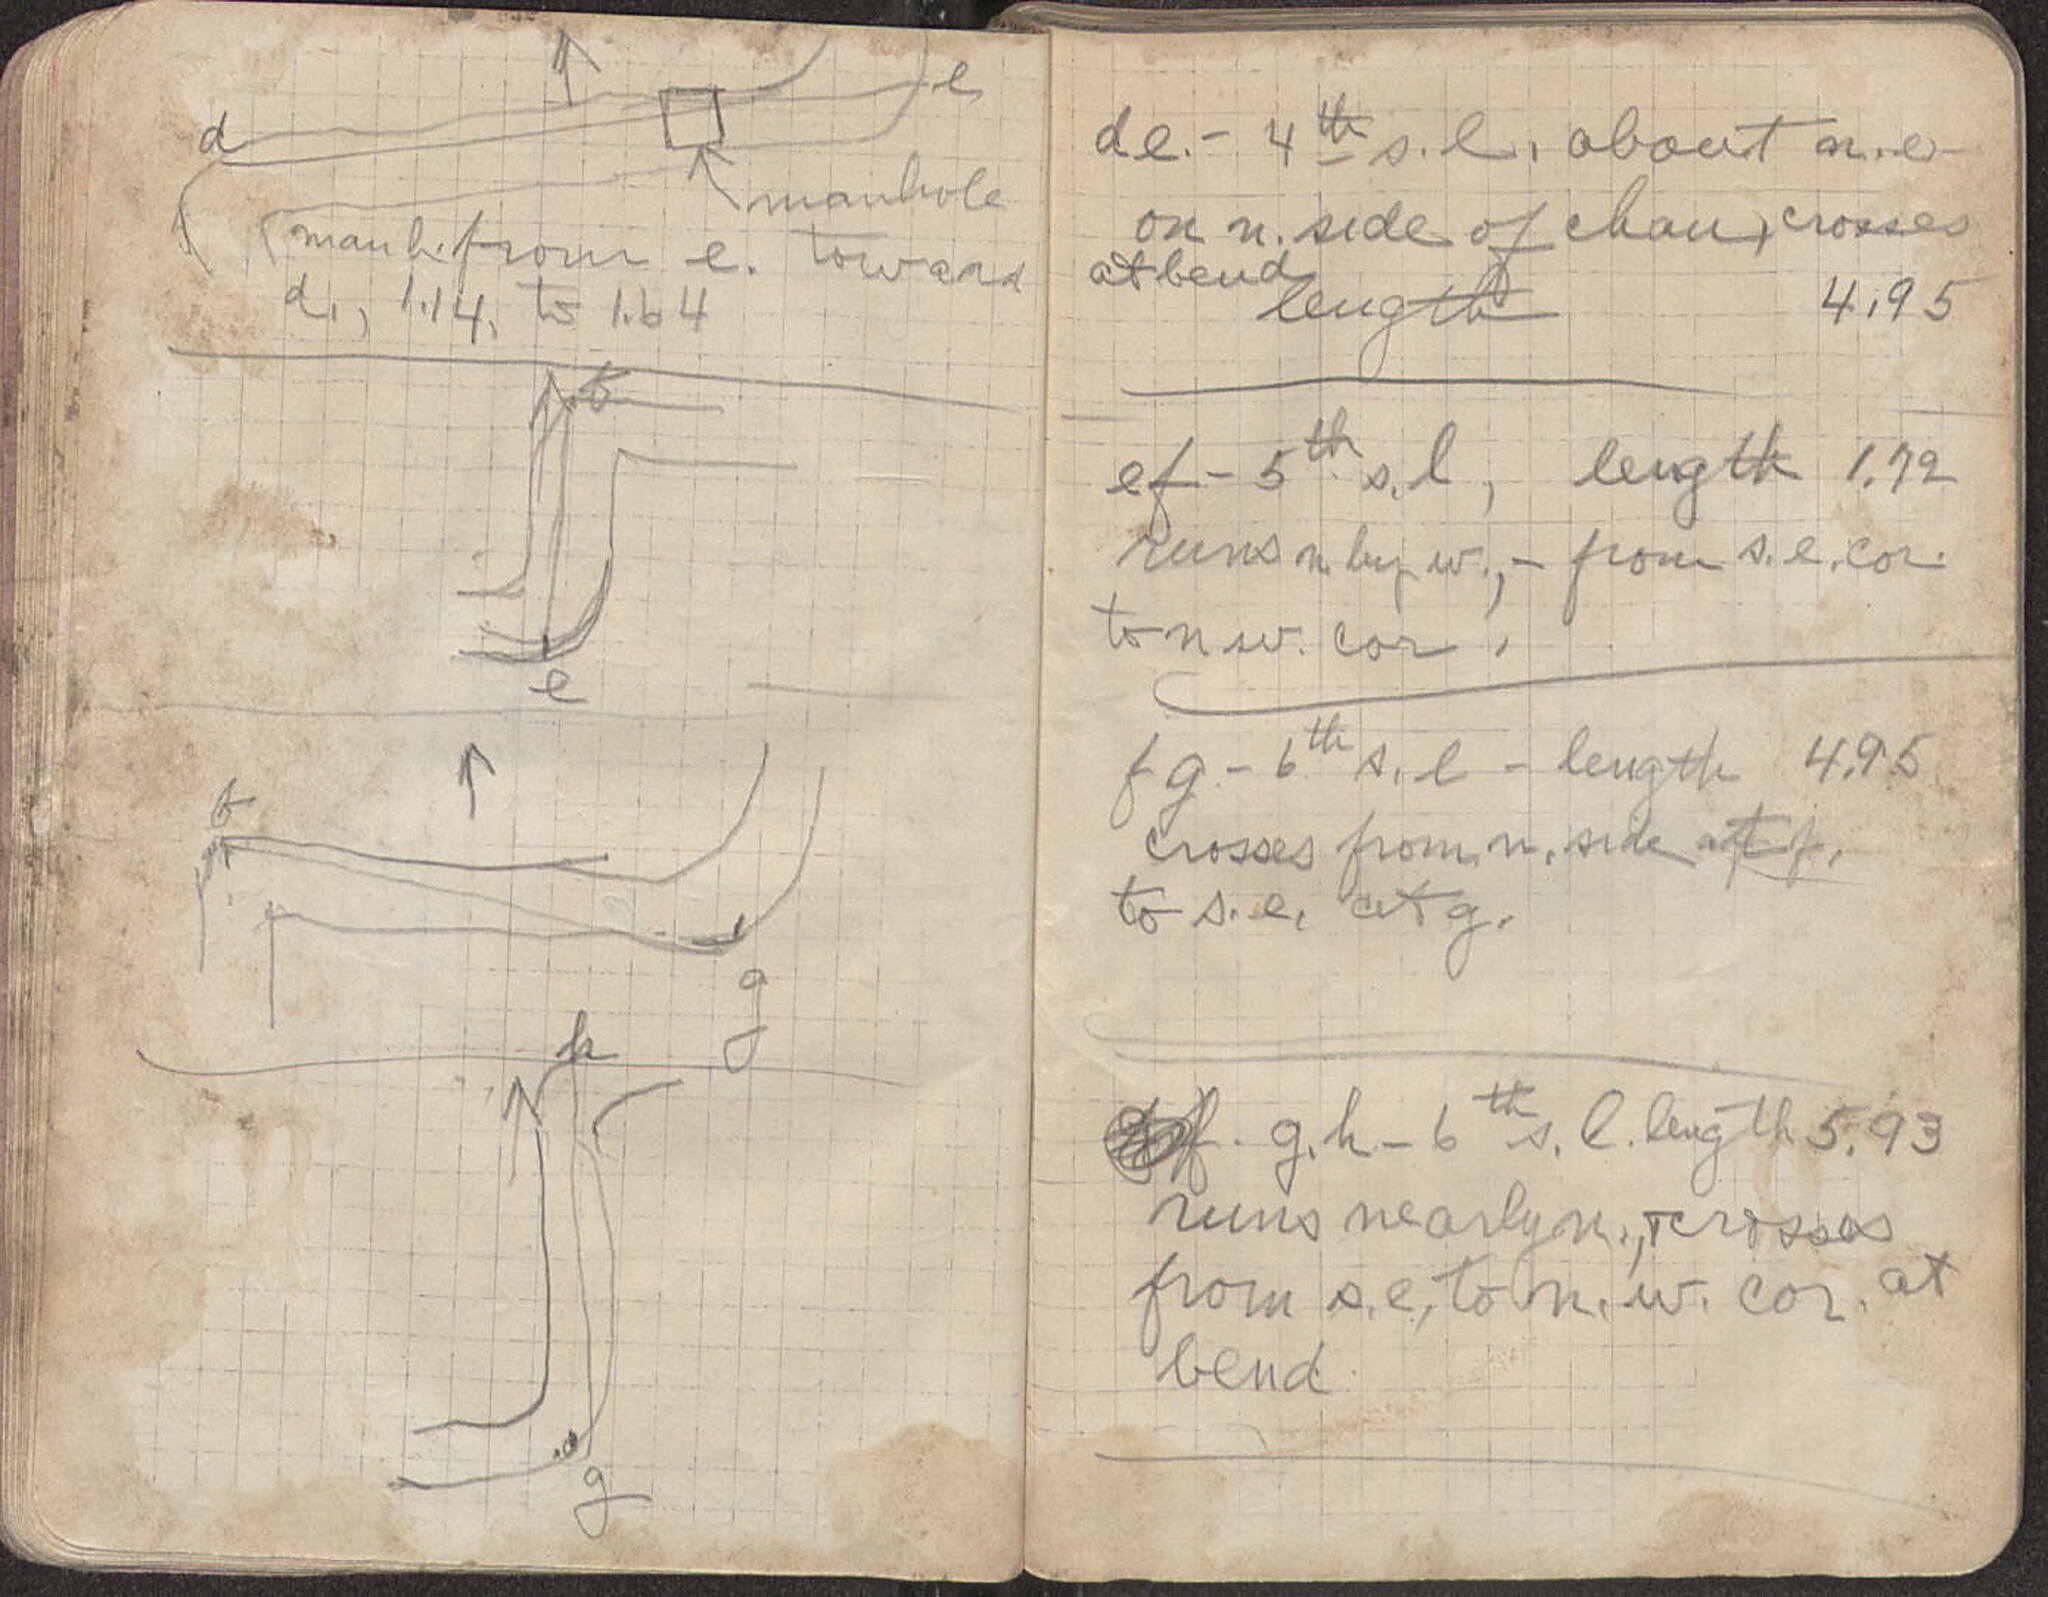 d
e
manhole
manh. from e. toward
d., 1.14, to 1.64
f
e
f
g
h
g
de. - 4th s.l. about n.e
on n. side of chan, crosses
at bend
length 4.95
ef - 5th s.l, length 1.72
runs n. by w., - from s.e. cor.
to n w. cor.
fg - 6th s.l - length 4.95
crosses from n. side at f.
to s.e. at g.
g.h - 6th s.l. length 5.93
runs nearly n., crosses
from s.e, to n.w. cor. at
bend